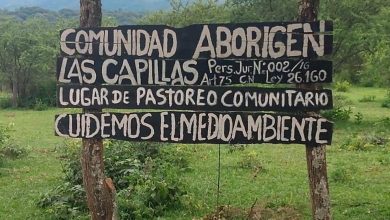 COMUNIDAD ABORIGEN
LAS CAPILLAS Pers. Jur Nº 002/16
Art 75 CN Ley 26.160
LUGAR DE PASTOREO COMUNITARIO
CUIDEMOS EL MEDIO AMBIENTE